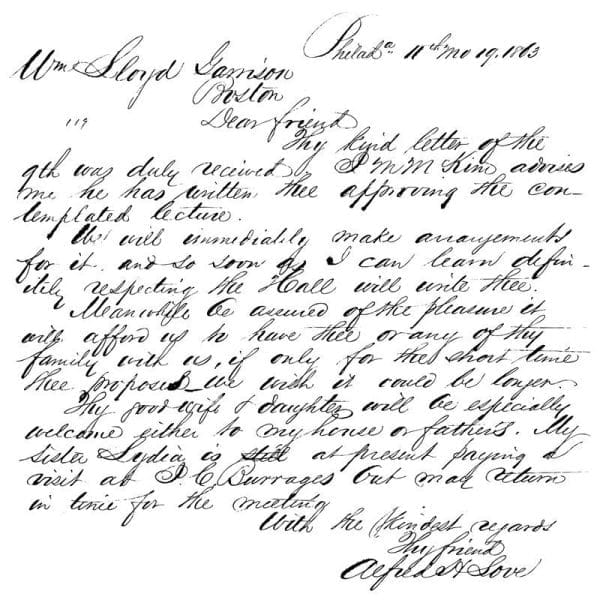 Philada. 11th mo 19. 1863
Wm Lloyd Garrison
Boston
119
Dear friend
Thy kind letter of the
9th was duly received, J M M Kim advises
me he has written thee approving the con-
templated lecture.
We will immediately make arrangements
for it and so soon as I can learn defin-
itely respecting the Hall will write thee.
Meanwhile be assured of the pleasure it
will afford us to have thee or any of thy
family with us, if only for the short time
thee proposed we wish it could be longer.
Thy good wife & daughter will be especially
welcome either to my house or father's. My
sister Lydia is still at present paying a
visit at J. C. Burrages but may return
in time for the meeting
With the kindest regards
Thy friend
Alfred H Love